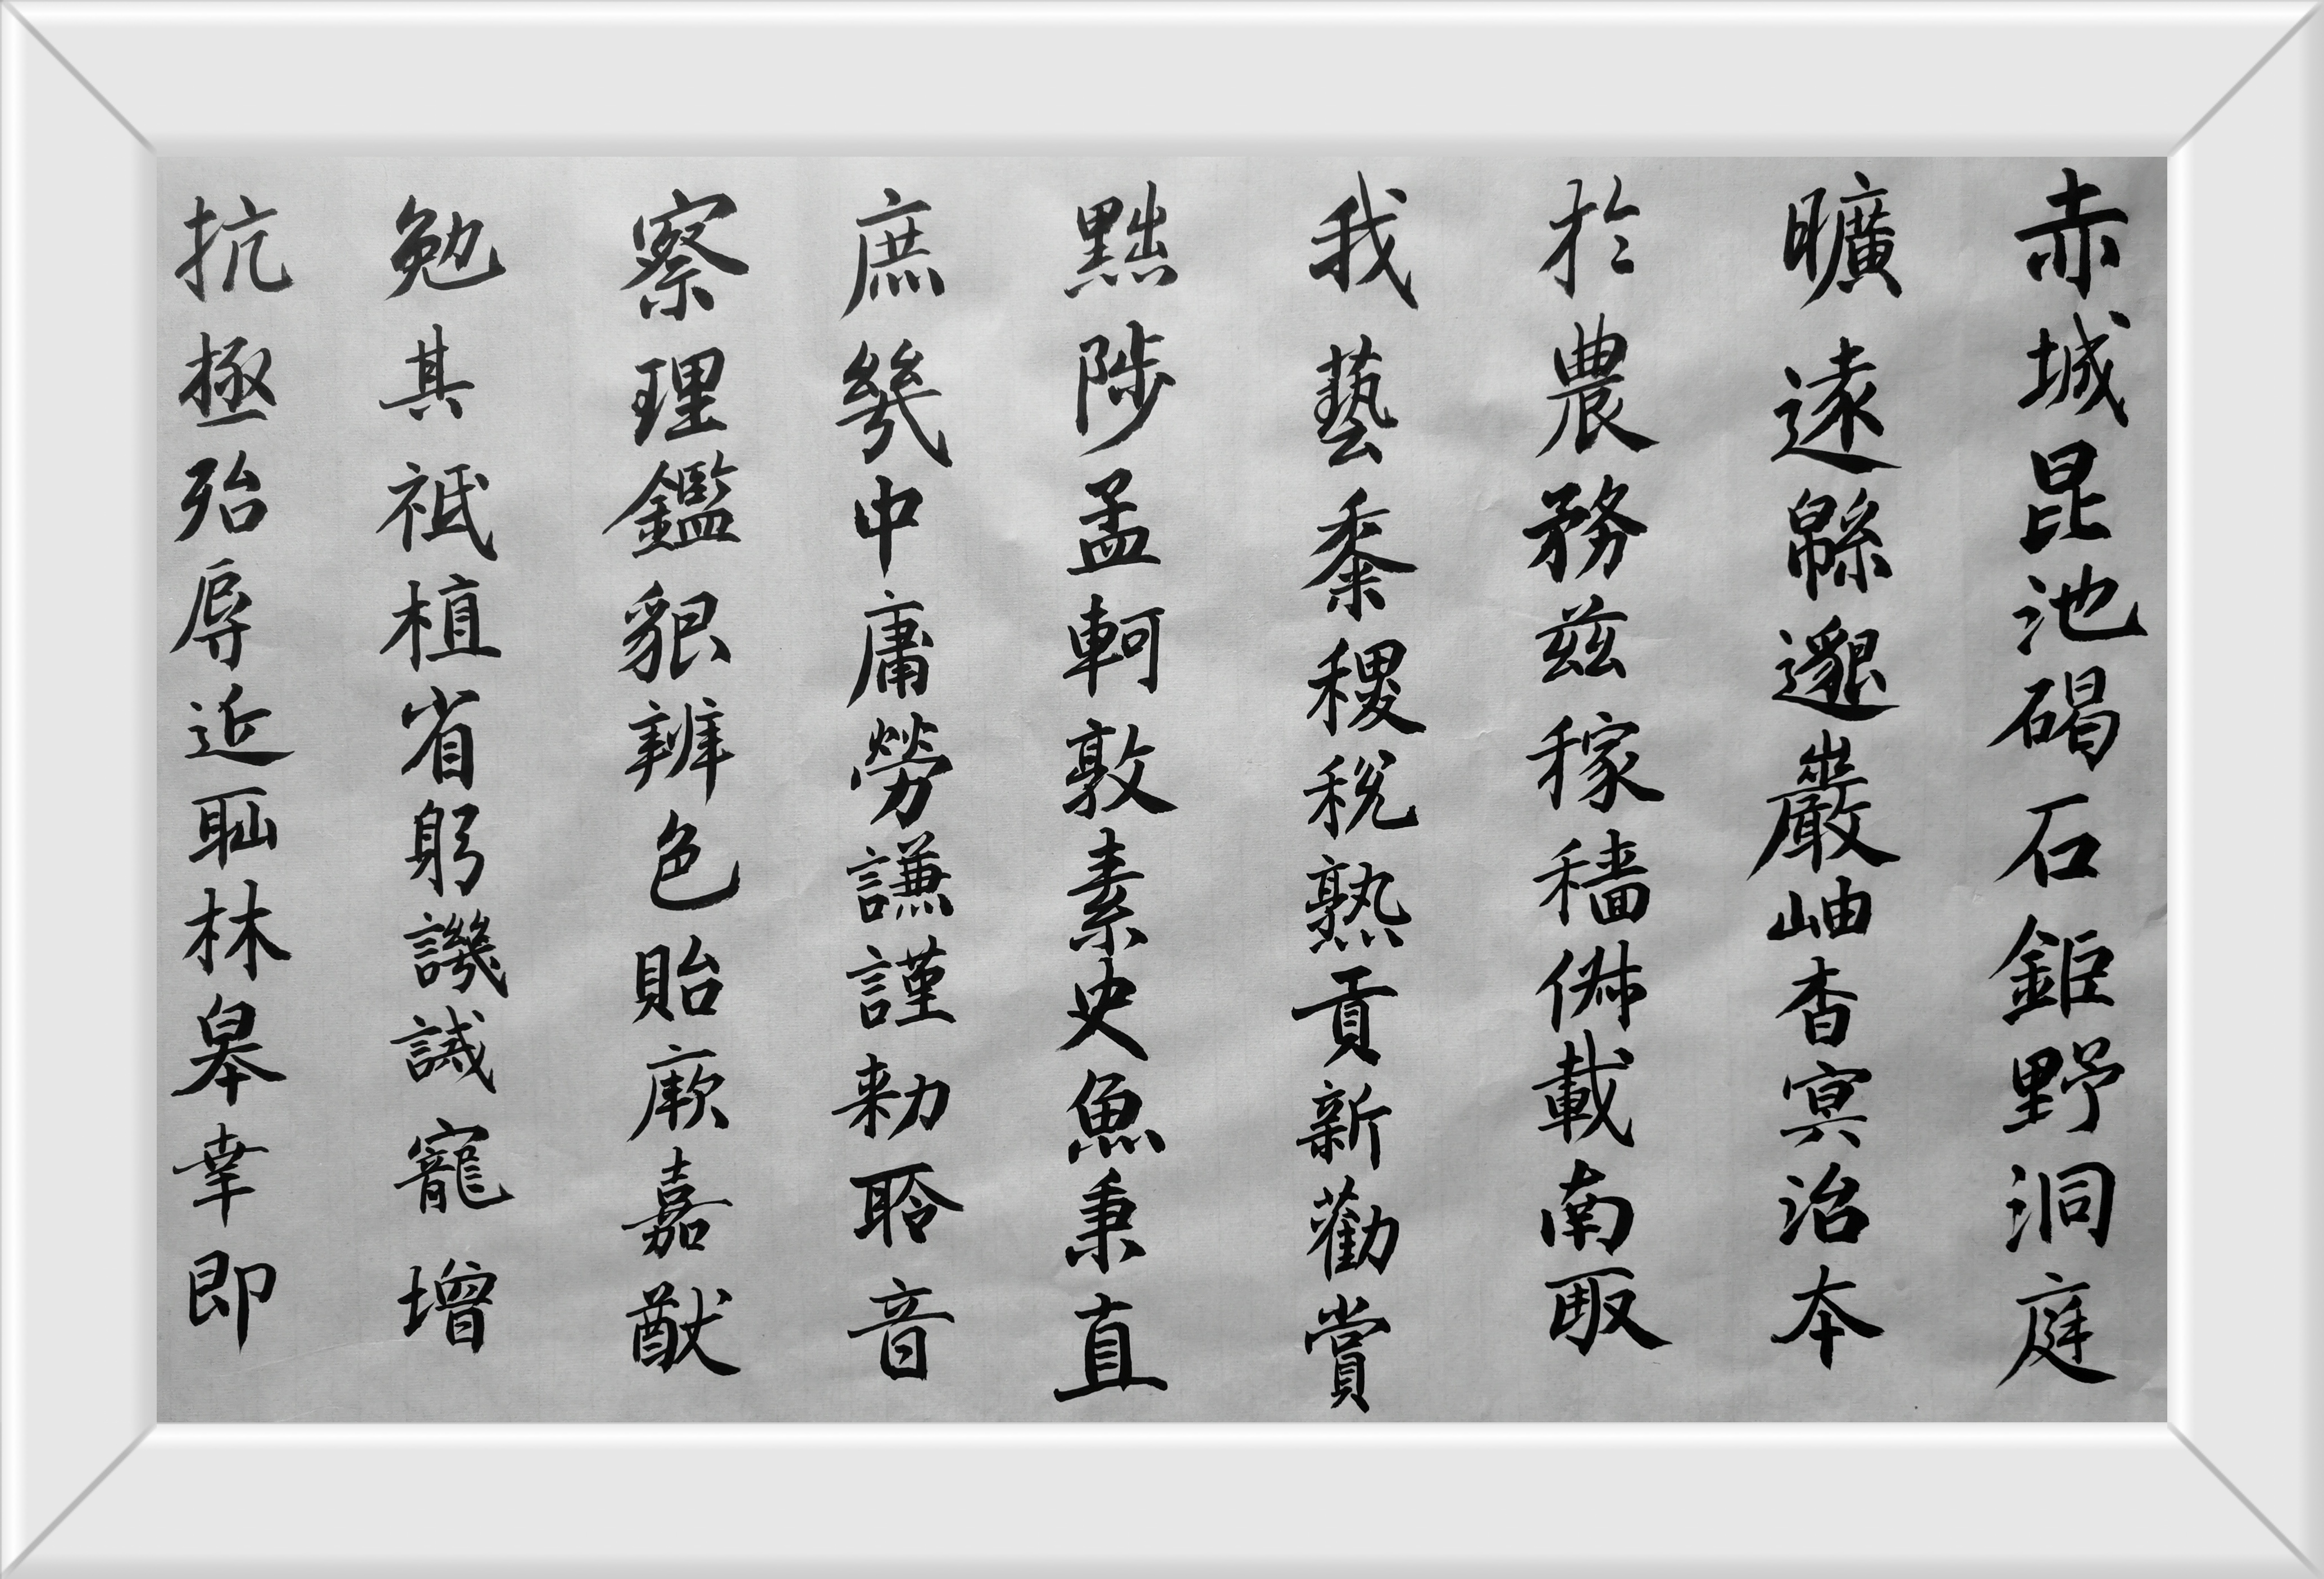 赤城昆池碣石鉅野洞庭
曠遠緜邈巖岫杳冥治本
於農務茲稼穡俶載南畝
我藝黍稷稅熟貢新勸賞
黜陟孟軻敦素史魚秉直
庶幾中庸勞謙謹勑聆音
察理鑑貌辨色貽厥嘉猷
勉其祗植省躬譏誡寵增
抗極殆辱近恥林皋幸即